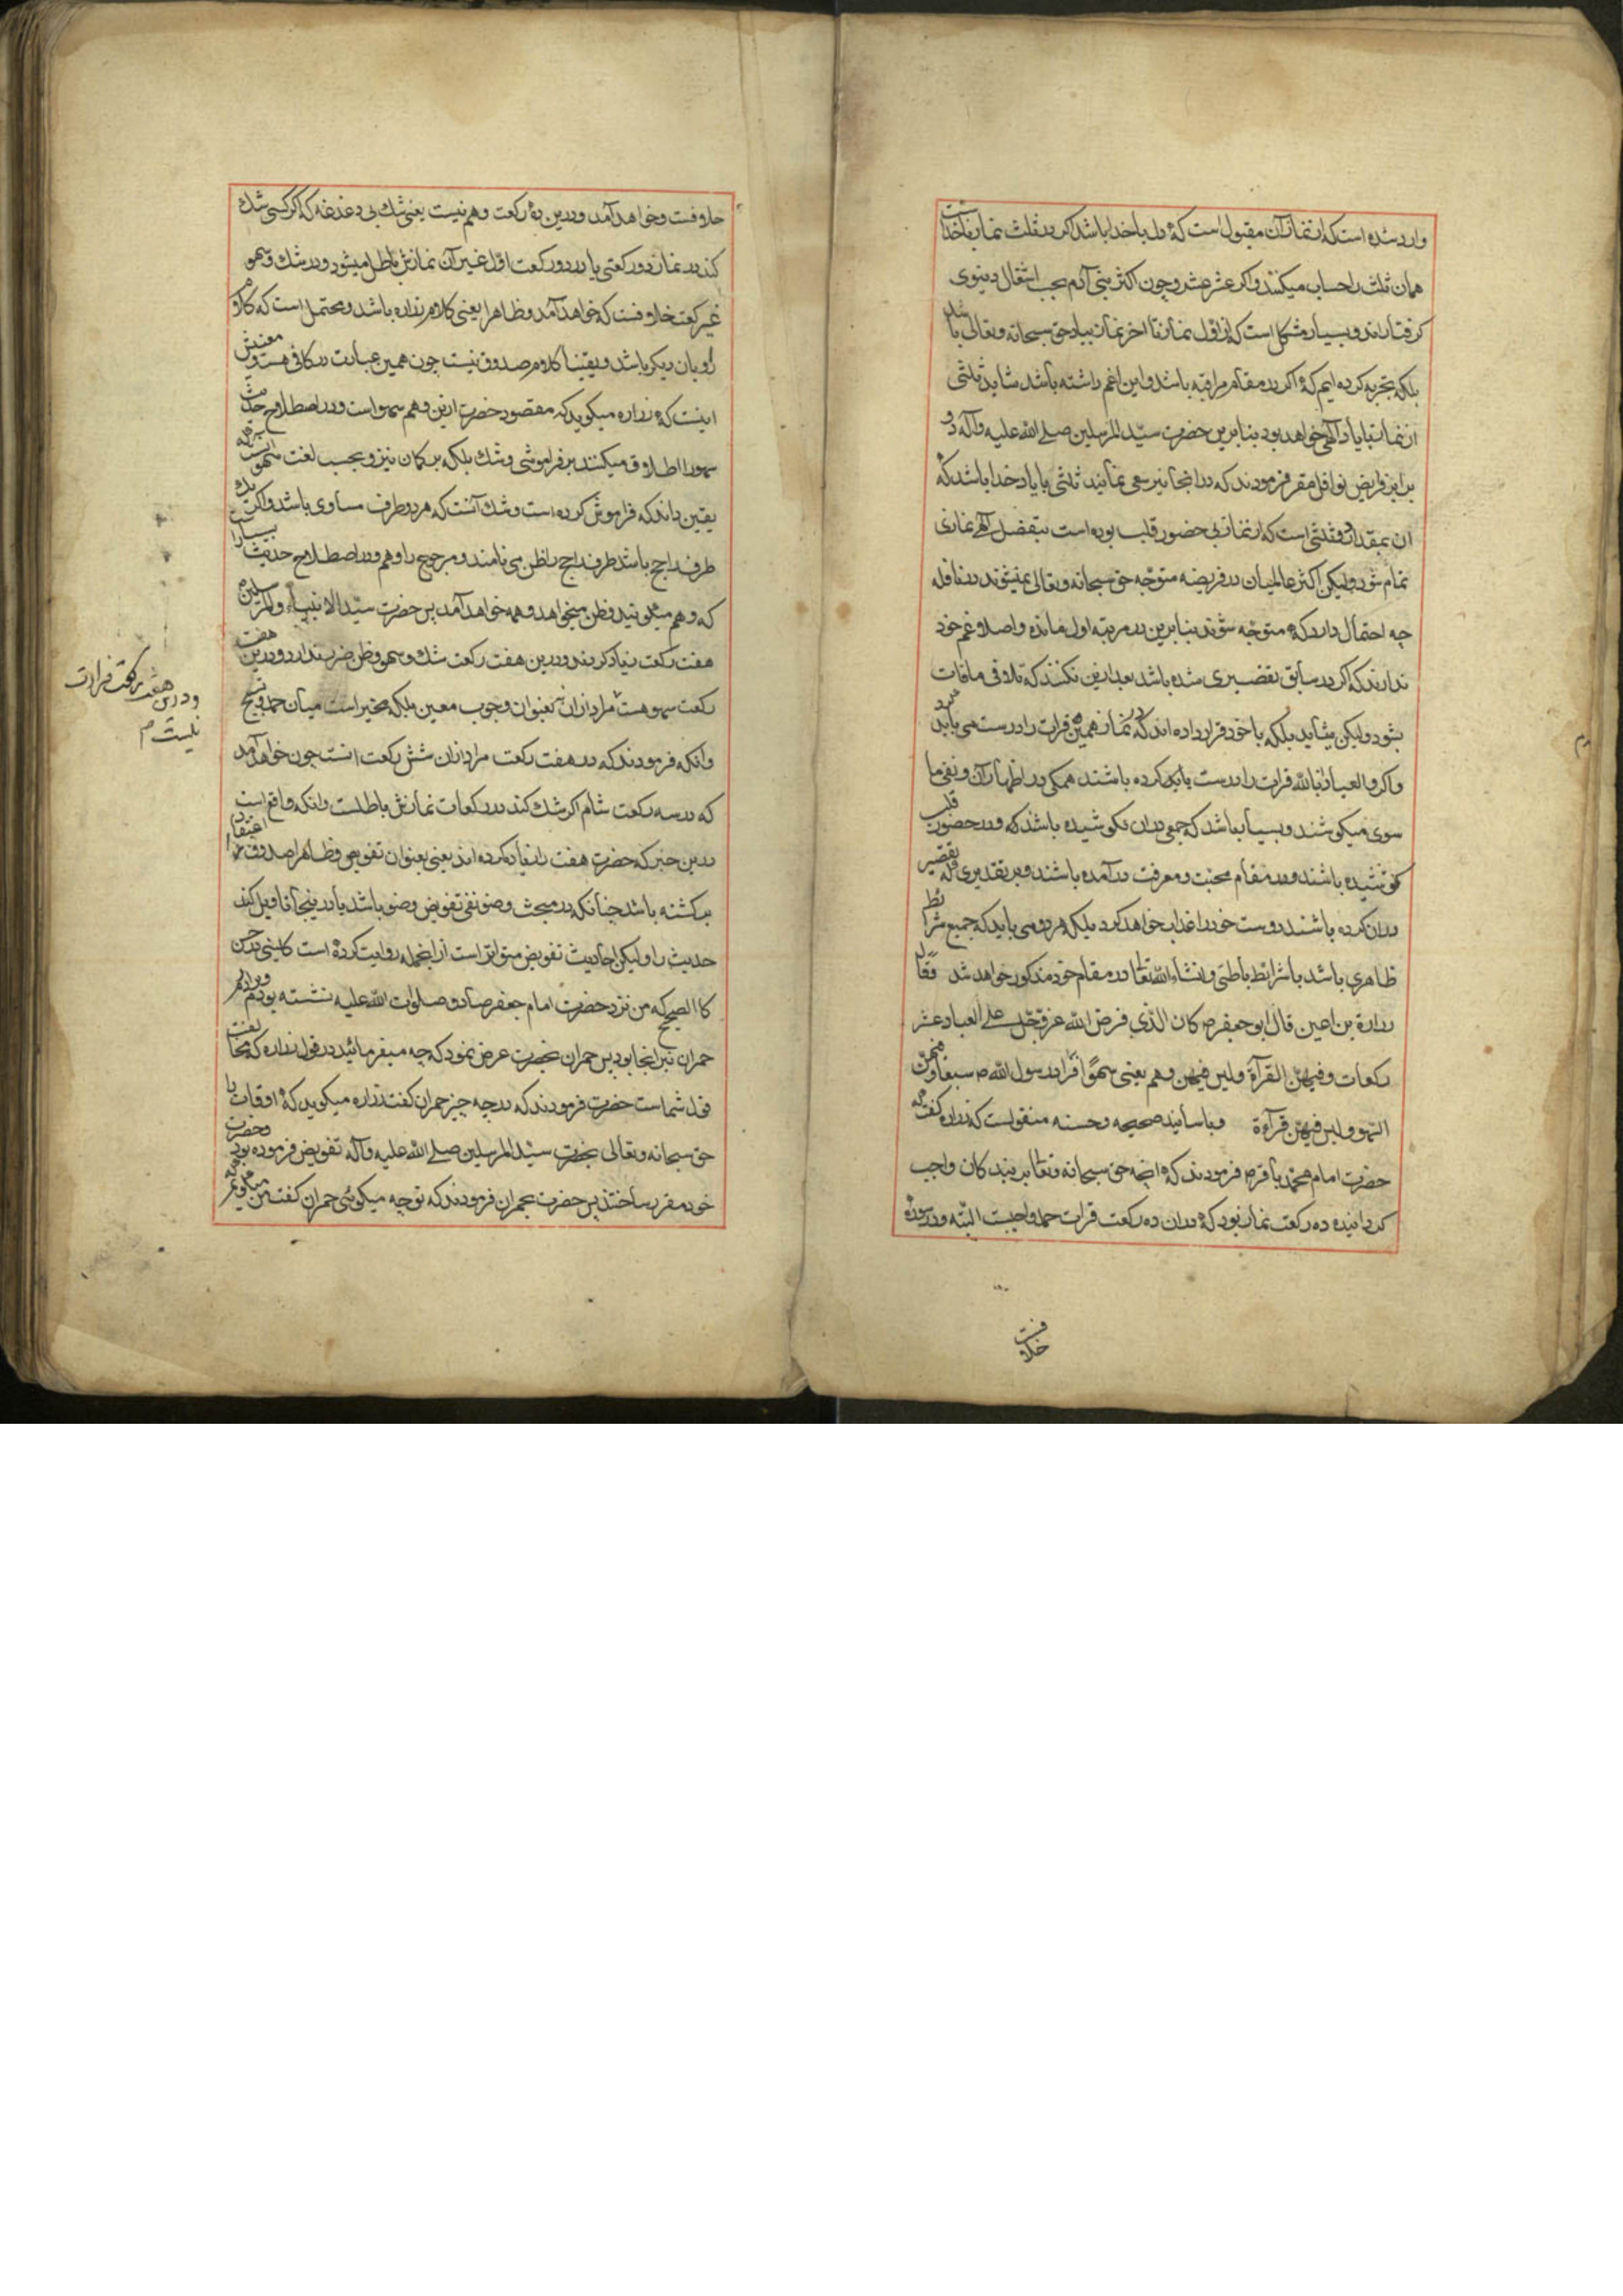 وارد شده است که از نماز آن مقبول است که دل با خدا باشد اگر در ثلث نماز با خداست
همان ثلث را حساب میکنند و اگر عشر عشر و چون اکثر بنی آدم بحسب اشتغال دنیوی
گرفتارند و بسیار مشکل است که از اول نماز تا اخر نماز بیاد حق سبحانه و تعالی باشد
بلکه تجربه کرده ایم که اگر در مقام مراقبه باشد و این غم داشته باشد شاید ثلثی
از نماز با یاد آلهی خواهد بود بنا برین حضرت سید المرسلین صلی الله علیه وآله دو
برابر فرایض نوافل مقرر فرمودند که در انجا نیز سعی نمایند ثلثی با یاد خدا باشد که
ان بمقدار دو ثلثی است که از نماز بی حضور قلب بوده است بتفضل آلهی نمازی
تمام شود ولیکن اکثر عالمیان در فریضه متوجه حق سبحانه وتعالی نمیشوند در نافله
چه احتمال دارد که متوجه شوند بنا برین در مرتبه اول مانده و اصلا غم خود
ندارند که اگر در سابق تقصیری شده باشد بعد ازین نکنند که تلافی مافات
بشود ولیکن میشاید بلکه با خود قرار داده اند که در نماز همین قرات را درست می باید کرد
واکر والعیاذ بالله قرات را درست یا بد کرده باشند همگی در اظهار آن و نفی ما
سوی میکوشند و بسیار باشد که جمعی دران نکوشیده باشد که و در حضور قلب
کوشیده باشند و در مقام محبت و معرفت درآمده باشند و بر تقدیری که تقصیر
دران کرده باشند دوست خود را عذاب نخواهد کرد بلکه هر دو می باید که جمیع شرایط
ظاهری باشد با شرایط باطنی و انشاء الله تعا در مقام خود مذکور خواهد شد وقال
زرارة بن اعین قال ابو جعفر ص کان الذی فرض الله عز وجل علی العباد عشر
رکعات وفیهن القرآءة ولیس فیهن وهم یعنی سهوا فزاد رسول الله ص سبعا وفیهن
السهو ولیس فیهن قرآءة وباسانید صحیحه و حسنه منقولست که زراره گفت که
حضرت امام محمد باقر ص فرمودند که انچه حق سبحانه وتعا بر بندکان واجب
کردانیده ده رکعت نماز بود که دران ده رکعت قرات حمد واجبست البته و در سوره
خلافست
خلافست و خواهد آمد و درین ده رکعت وهم نیست یعنی شک بی دغدغه که اگر کسی شک
کند در نماز دو رکعتی یا در دو رکعت اول غیر آن نمازش باطل میشود و در شک و سهو
غیر رکعت خلافست که خواهد آمد و ظاهرا یعنی کلام زراره باشد و محتمل است که کلام
راویان دیگر باشد و یقینا کلام صدوق نیست چون همین عبارت در کافی هست و معنیش
اینست که زراره میگوید که مقصود حضرت ازین وهم سهو است و در اصطلاح حدیث
سهو را اطلاق میکنند بر فراموشی و شک بلکه بر کمان نیز و بحسب لغت سهو آنست که
یقین داند که فراموش کرده است و شک آنست که هر دو طرف مساوی باشد و اگر یک
طرف راجح باشد طرف راجح را ظن می نامند و مرجوح را وهم و در اصطلاح حدیث بسیار است
که وهم میگویند و ظن میخواهند و همه خواهد آمد پس حضرت سید الانبیاء والمرسلین
هفت رکعت زیاد کردند و درین هفت رکعت شک و سهو و ظن ضرر ندارد و درین هفت
رکعت سهو هست مراد ازان بعنوان وجوب معین بلکه مخیر است میان حمد و تسبیح
وانکه فرمودند که در هفت رکعت مراد ازان شش رکعت است چون خواهد آمد
که در سه رکعت شام اگر شک کند در رکعات نمازش باطلست وانکه واقع است
درین خبر که حضرت هفت را زیاده کرده اند یعنی بعنوان تفویض و ظاهرا صدوق از اعتقاد
برگشته باشد چنانکه در مبحث وضو نفی تفویض وضو باشد یا در اینجا تاویل کند
حدیث را ولیکن احادیث تفویض متواتر است از انجمله روایت کرده است کلینی در حسن
کالصحیح که من نزد حضرت امام جعفر صادق صلوات الله علیه نشسته بودم و برادرم
حمران نیز انجا بود پس حمران بحضرت عرض نمود که چه میفرمائید در قول زراره که مخالفت
قول شما است حضرت فرمودند که در چه چیز حمران گفت زراره میکوید که اوقات را
حق سبحانه وتعالی بحضرت سید المرسلین صلی الله علیه وآله تفویض فرموده بود و حضرت
خود مقرر ساختند پس حضرت بحمران فرمودند که تو چه میکوئی حمران گفت من میگویم که
و درین هفت رکعت قرات
نیست م